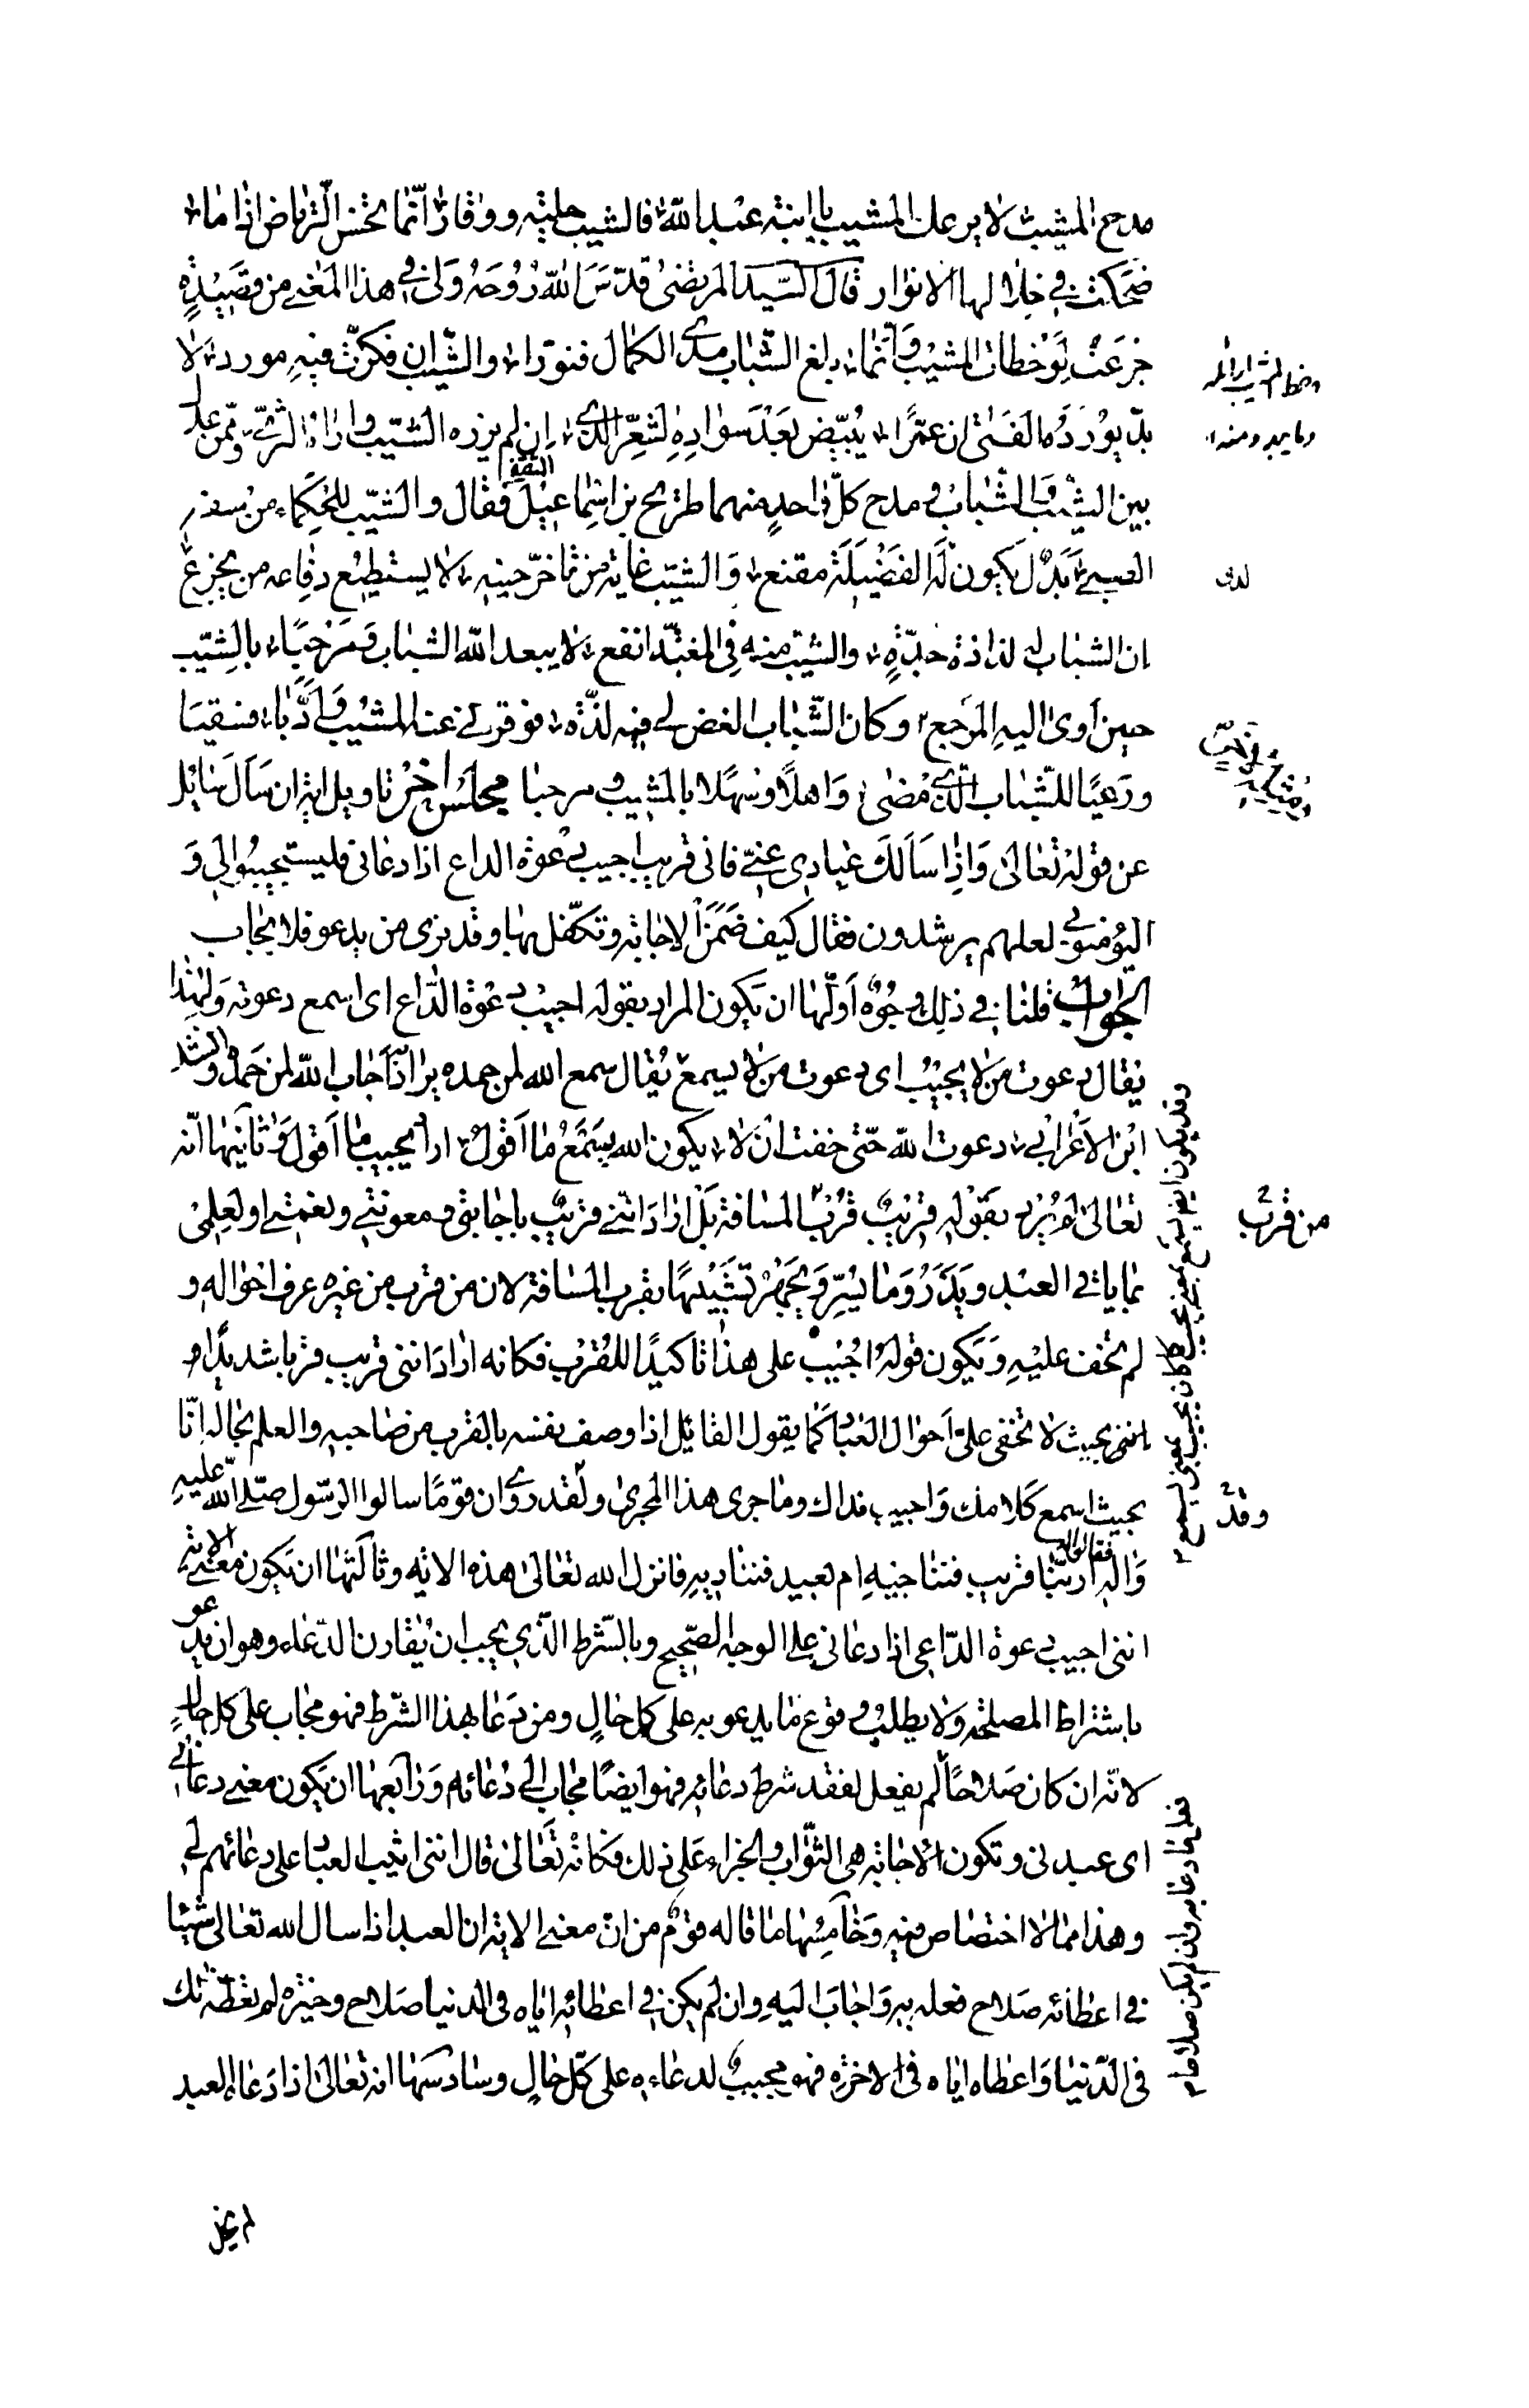 مدح المشيب لا يرعك المشيب يا ابنة عبد الله فالشيب حلية ووقار انما تحسن الرياض اذا ما
ضحكت في خلالها الانوار قال السيد المرتضى قدس الله روحه ولي في هذا المعنى من قصيدة
جزعت لوخطات المشيب وانما بلغ الشباب مدى الكمال فنورا والشيب ان فكرت فيه مورد لا
بد يورده الفتى ان عمرا يبيض بعد سواده الشعر الذي ان لم يزره الشيب واراه الثرى وممن عدل
بين الشيب والشباب في مدح كل واحد منهما طريح بن اسماعيل الثقفي فقال والشيب للحكماء من سفه
الصبى بدل يكون له الفضيلة مقنع والشيب غاية من تاخر حينه لا يستطيع دفاعه من يجزع
ان الشباب له لذاذة جدة والشيب منه في المغبة انفع لا يبعد الله الشباب فمرحبا بالشيب
حين اوى اليه المرجع وكان الشباب الغض لي فيه لذة فوقرني عنه المشيب وادبا فسقيا
ورعيا للشباب الذي مضى واهلا وسهلا بالمشيب ومرحبا مجلس اخر تاويل اية ان سال سائل
عن قوله تعالى واذا سالك عبادي عني فاني قريب اجيب دعوة الداع اذا دعاني فليستجيبوا لي و
اليؤمنوا بي لعلهم يرشدون فقال كيف ضمن الاجابة وتكفل بها وقد نرى من يدعو فلا يجاب
الجواب قلنا في ذلك وجوه اولها ان يكون المراد بقوله اجيب دعوة الداع اى اسمع دعوته ولهذا
يقال دعوت من لا يجيب اى دعوت من لا يسمع يقال سمع الله لمن حمده يراد اجاب الله لمن حمده وانشد
ابن الاعرابي دعوت الله حتى خفت ان لا يكون الله يسمع ما اقول اراد يجيب ما اقول وثانيها انه
تعالى لم يرد بقوله قريب قرب المسافة بل اراد انني قريب باجابتي ومعونتي ونعمتي او لعلمي
بما ياتي العبد ويذر وما يسر ويجهر تشبيها بقرب المسافة لان من قرب من غيره عرف احواله و
لم يخف عليه ويكون قوله اجيب على هذا تاكيدا للقرب فكانه اراد انني قريب قربا شديدا و
انني بحيث لا تخفى علي احوال العباد كما يقول القائل اذا وصف نفسه بالقرب من صاحبه والعلم بحاله انا
بحيث اسمع كلامك واجيب نداك وما جرى هذا المجرى ولقد روي ان قوما سالوا الرسول صلى الله عليه
واله فقالوا له اربنا قريب فنناجيه ام بعيد فنناديه فانزل الله تعالى هذه الاية وثالثها ان يكون معنى الاية
انني اجيب دعوة الداعي اذا دعاني على الوجه الصحيح وبالشرط الذي يجب ان يقارن الدعاء وهو ان يدعو
باشتراط المصلحة ولا يطلب وقوع ما يدعو به على كل حال ومن دعا بهذا الشرط فهو مجاب على كل حال
لانه ان كان صلاحا لم يفعل لفقد شرط دعائه فهو ايضا مجاب الى دعائه ورابعها ان يكون معنى دعاني
اى عبدني وتكون الاجابة هي الثواب والجزاء على ذلك فكانه تعالى قال انني اثيب العباد على دعائهم لي
وهذا مما لا اختصاص فيه وخامسها ما قاله قوم من ان معنى الاية ان العبد اذا سال الله تعالى شيئا
في اعطائه صلاح فعله به واجاب اليه وان لم يكن في اعطائه اياه في الدنيا صلاح وخيره لم يعطه ذلك
في الدنيا واعطاه اياه في الاخرة فهو مجيب لدعاءه على كل حال وسادسها انه تعالى اذا دعاه العبد
لدى
من قرب
وقد يكون ايضا يسمع بمعنى يجيب كما كان يجيب بمعنى يسمع
وقد
فعل لما دعا به وان لم يكن صلاحا
لم يخل